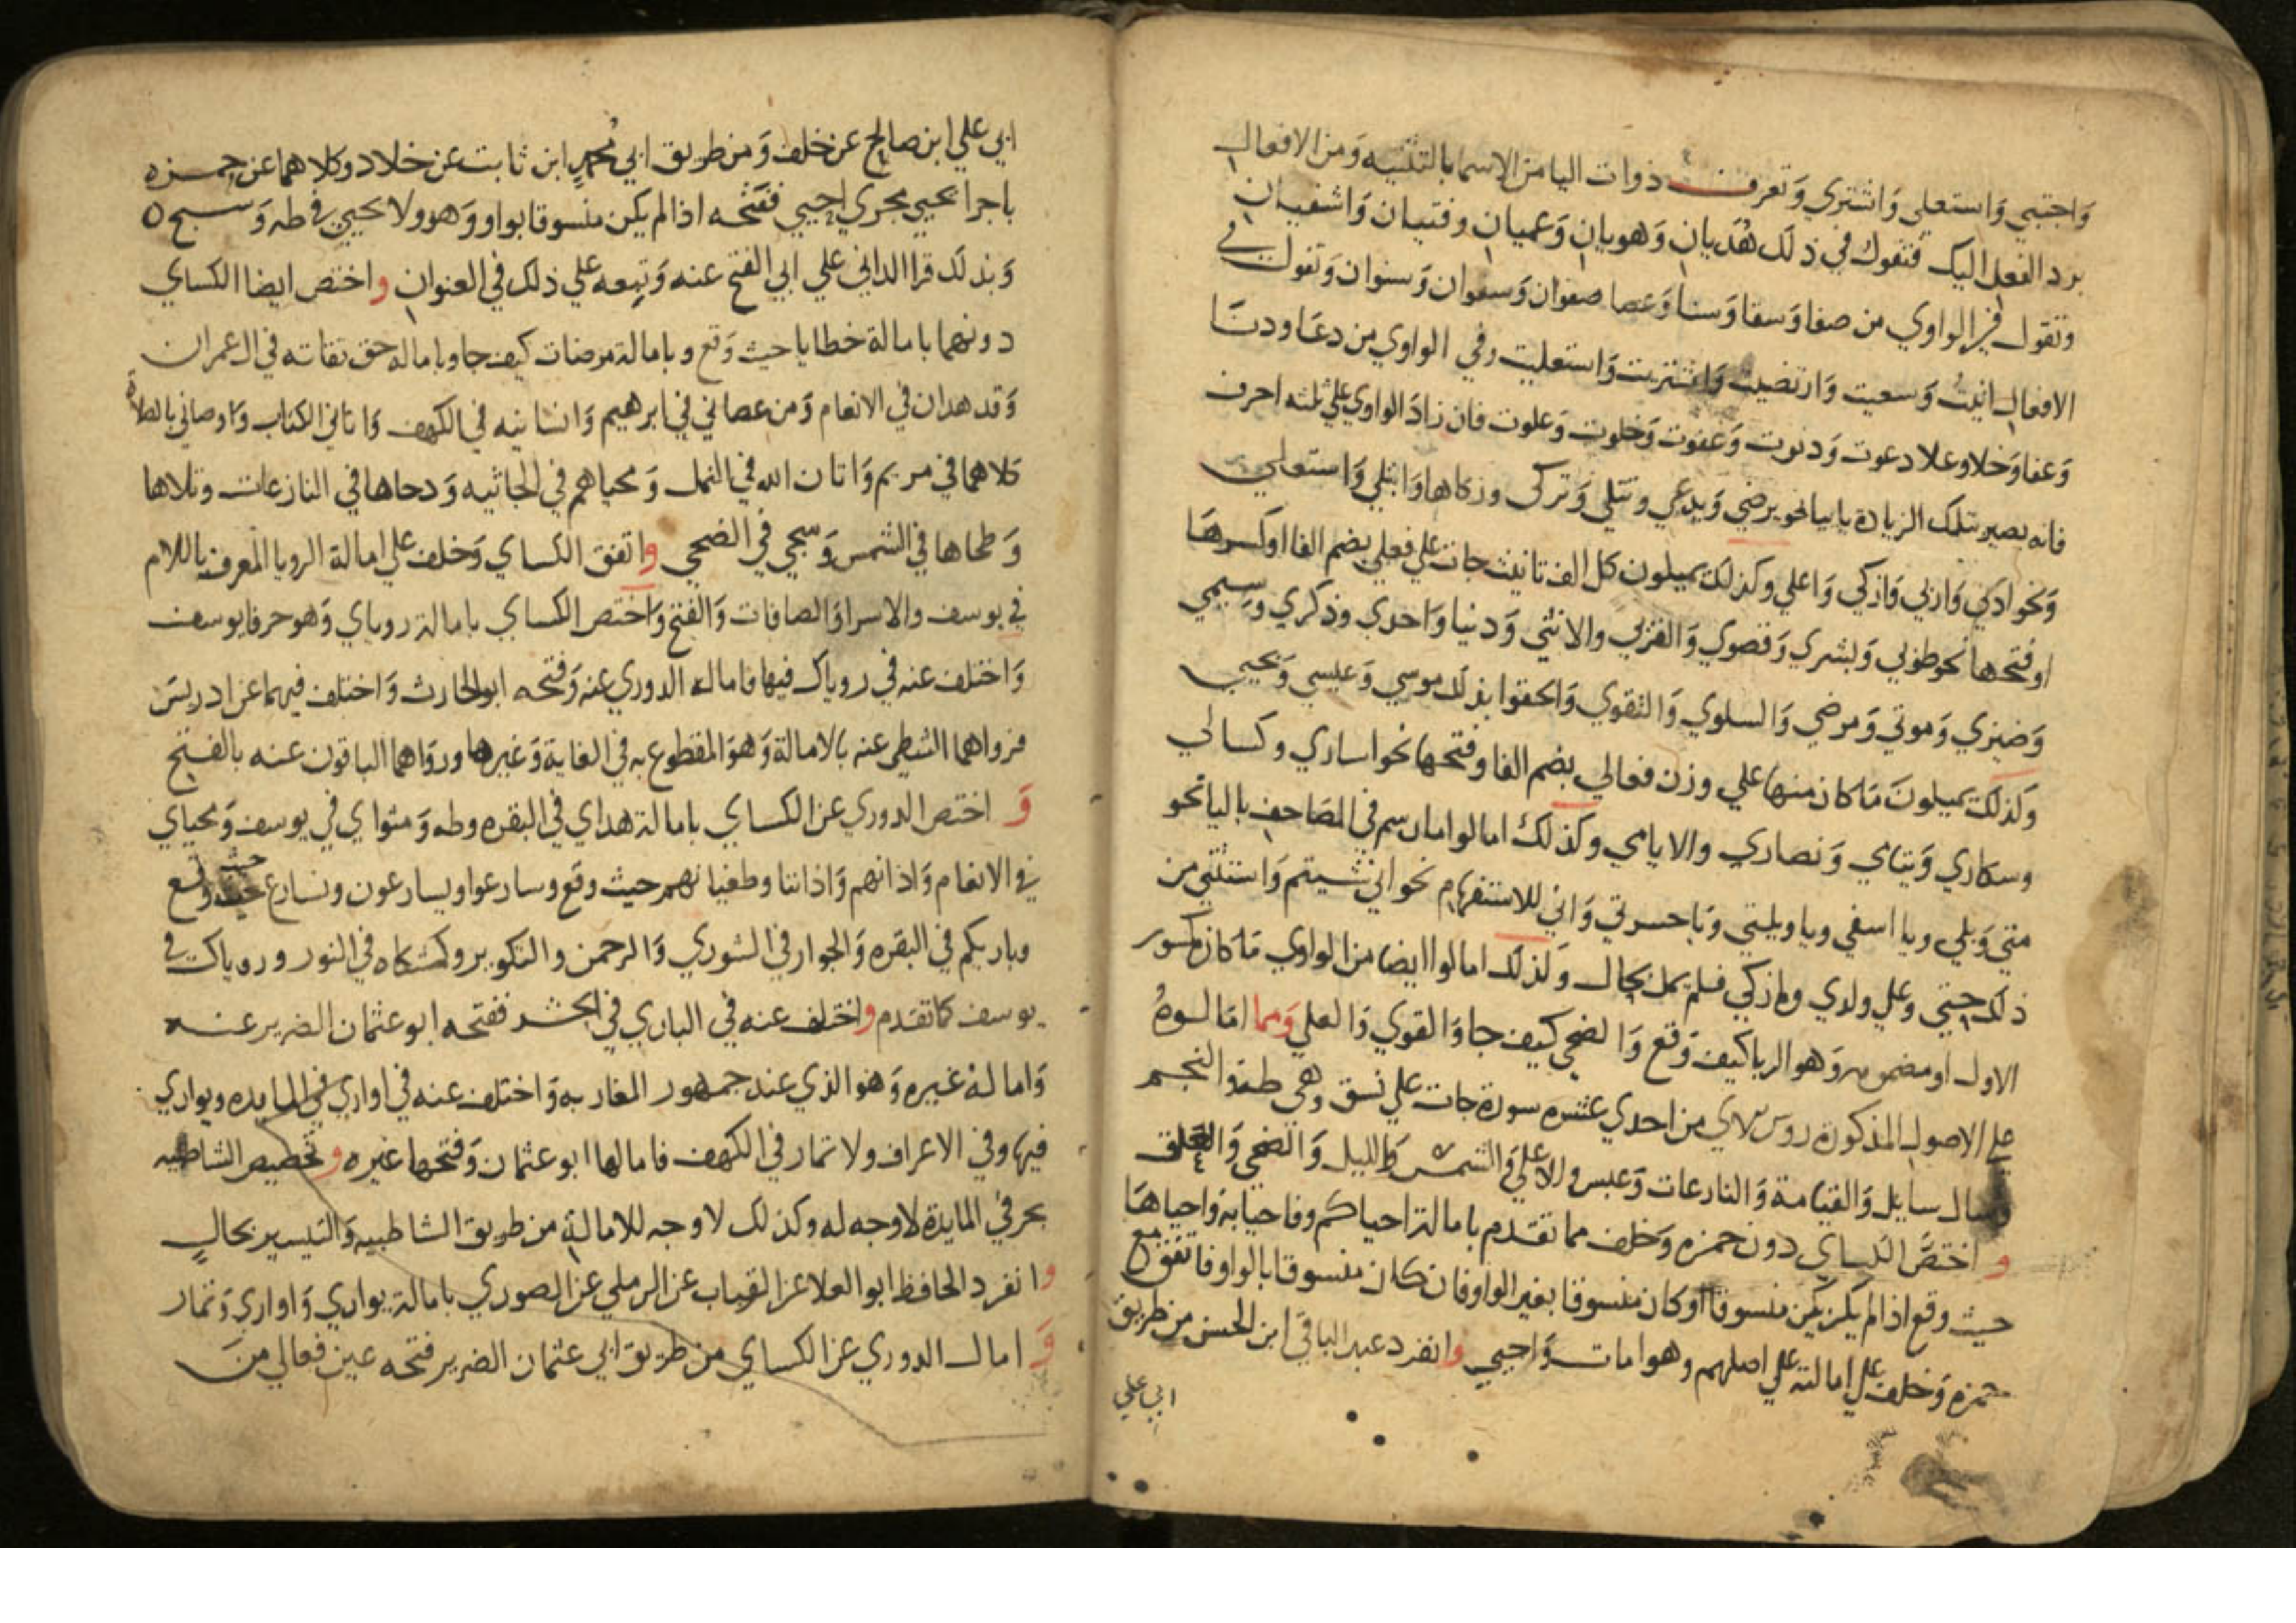 وَاجتبي وَاستعلي وَاشتري وَتعرف ذوات اليا من الاسما بالتثنيه وَمن الافعال
برد الفعل اليك فتقول في ذلك هُدَيان وَهويان وَعميان وفتيان وَاشفيان
وتقول في الواوي من صفا وَسفا وَسنا وَعصا صفوان وَسفوان وَسنوان وَتقول في
الافعال اتيت وَسعيت وَارتضيت وَاشتريت وَاستعليت وفي الواوي من دعَا ودنَا
وَعفا وَخلا وعلا دعوت وَدنوت وَعفوت وَخلوت وَعلوت فان زادَ الواوي علي ثلثه احرف
فانه يصير بتلك الزياده يايبا نحو يرضي وَيدعي وتتلي وَتركى وزكاها وَابتلي وَاستعلي
وَنحو ادني وَاربي وَازكي وَاعلي وكذلك يميلون كل الف تانيث جات علي فعلي بضم الفا او كسرهَا
اوفتحها نحو طوبي وَبشري وَقصوي وَالقربي والانثي وَدنيا وَاحدي وذكري وَسيمي
وَضيزي وَموتي وَمرضي وَالسلوي وَالتقوي وَالحقوا بذلك موسي وَعيسي وَيحيي
وكذلك يميلونَ مَا كان منها علي وزن فعالي بضم الفا وفتحها نحو اساري وكسالي
وسكاري وَيتامي وَنصاري والايامي وكذلك امالوا ما رسم في المصَاحف باليا نحو
متي وَبلي ويا اسفي ويا ويلتي وَيا حسرتي وَاني للاستفهام نحو اني شيتم وَاستثني من
ذلك حتي وعلي ولدي وما زكي فلم يمل بحال وَلذلك امالوا ايضا من الواوي مَا كان مكسور
الاول او مضمومه وَهو الربا كيف وَقع وَالضحي كيف جا وَالقوي وَالعلي وَمما امَالوهُ
علي الاصول المذكوره روس الاي من احدي عشره سورة جات علي نسق وهي طه وَالنجم
وَسال سايل وَالقيامة وَالنازعات وَعبس والاعلي وَالشمس وَالليل وَالضحي وَالعلق
وَ اختصَّ الكساي دون حمزه وَخلف مما تقدم بامالة احياكم وفاحيا به وَاحياهَا
حيث وقع اذا لم يكن يكن منسوقا اوكان منسوقا بغير الواو فان كان منسوقا بالواو فاتفق مع
حمزه وَخلف علي امالته علي اصلهم وهو امات وَاحيي وَانفرد عبد الباقي ابن الحسن من طريق
ابي علي
ابي علي ابن صالح عن خلف وَمن طريق ابي محمدٍ ابن ثابت عن خلاد وكلاهما عن حمزه
باجرا يحيي مجري احيي ففتحه اذا لم يكن منسوقا بواو وَهو ولا يحيي في طه وَسبح
وَبذلك قرا الداني علي ابي الفتح عنه وَتبعه علي ذلك في العنوان وَاختص ايضا الكساي
دونهما بامالة خطايا حيث وَقع وبامالة مرضات كيف جا وباماله حق تقاته في ال عمران
وَقد هدان في الانعام وَمن عصاني في ابرهيم وَانسانيه في الكهف وَاتاني الكتاب وَاوصاني بالصلاة
كلاهما في مريم وَاتان الله في النمل وَمحياهم في الجاثيه وَدحاها في النازعات وتلاها
وَطحاها في الشمس وَسجي في الضحي وَاتفق الكساي وَخلف علي امالة الرويا المعرف باللام
في يوسف والاسرا وَالصافات وَالفتح وَاختص الكساي بامالة روياي وَهو حرفا يوسف
وَاختلف عنه في روياك فيها فاماله الدوري عنه وَفتحه ابو الحارث وَاختلف فيهما عن ادريسَ
فرواهما الشطي عنه بالامالة وَهوَ المقطوع به في الغاية وَغيرها ورواهما الباقون عنه بالفتح
وَ اختص الدوري عن الكساي بامالة هداي في البقره وطه وَمثواي في يوسف وَمحياي
في الانعام وَاذانهم وَاذاننا وطغيانهم حيث وقع وسارعوا ويسارعون ونسارع حيث وقع
وباريكم في البقره وَالجوار في الشوري وَالرحمن والتكوير وكمشكاه في النور وروياك في
يوسف كما تقدم وَاختلف عنه في الباري في الحشر ففتحه ابو عثمان الضرير عنه
وَاماله غيره وَهو الذي عند جمهور المغاربه وَاختلف عنه في اواري في المايده ويواري
فيها وفي الاعراف ولا تمار في الكهف فامالها ابو عثمان وَفتحها غيره وَتخصيص الشاطبيه
بحرفي المايدة لا وجه له وكذلك لا وجه للامالة من طريق الشاطبيه وَالتيسير بحالٍ
وَانفرد الحافظ ابو العلا عن القباب عن الرملي عن الصوري بامالة يواري وَاواري وَتمار
وَ امال الدوري عن الكساي من طريق ابي عثمان الضرير فتحه عين فعالي منَ